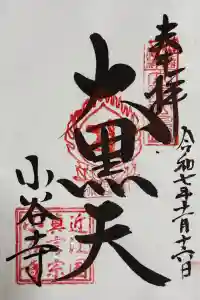 奉拝
令和七年十一月十六日
大黒天
小谷寺
近江
真言宗